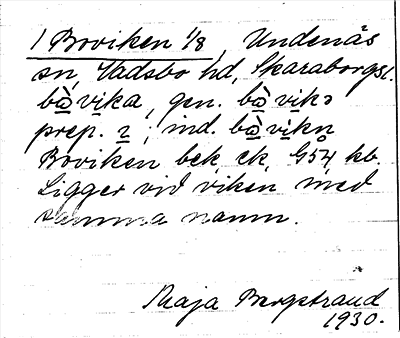 1 Boviken 1/8, Undenäs
sn, Vadsbo hd, Skaraborgsl.
bò̱vi̱ka, gen. bò̱vi̱kɔ
prep. ɪ; ind. bò̱vi̱kn
Boviken bek. ek. G54 kb.
Ligger vid viken med
samma namn.
Maja Bergstrand
1930.